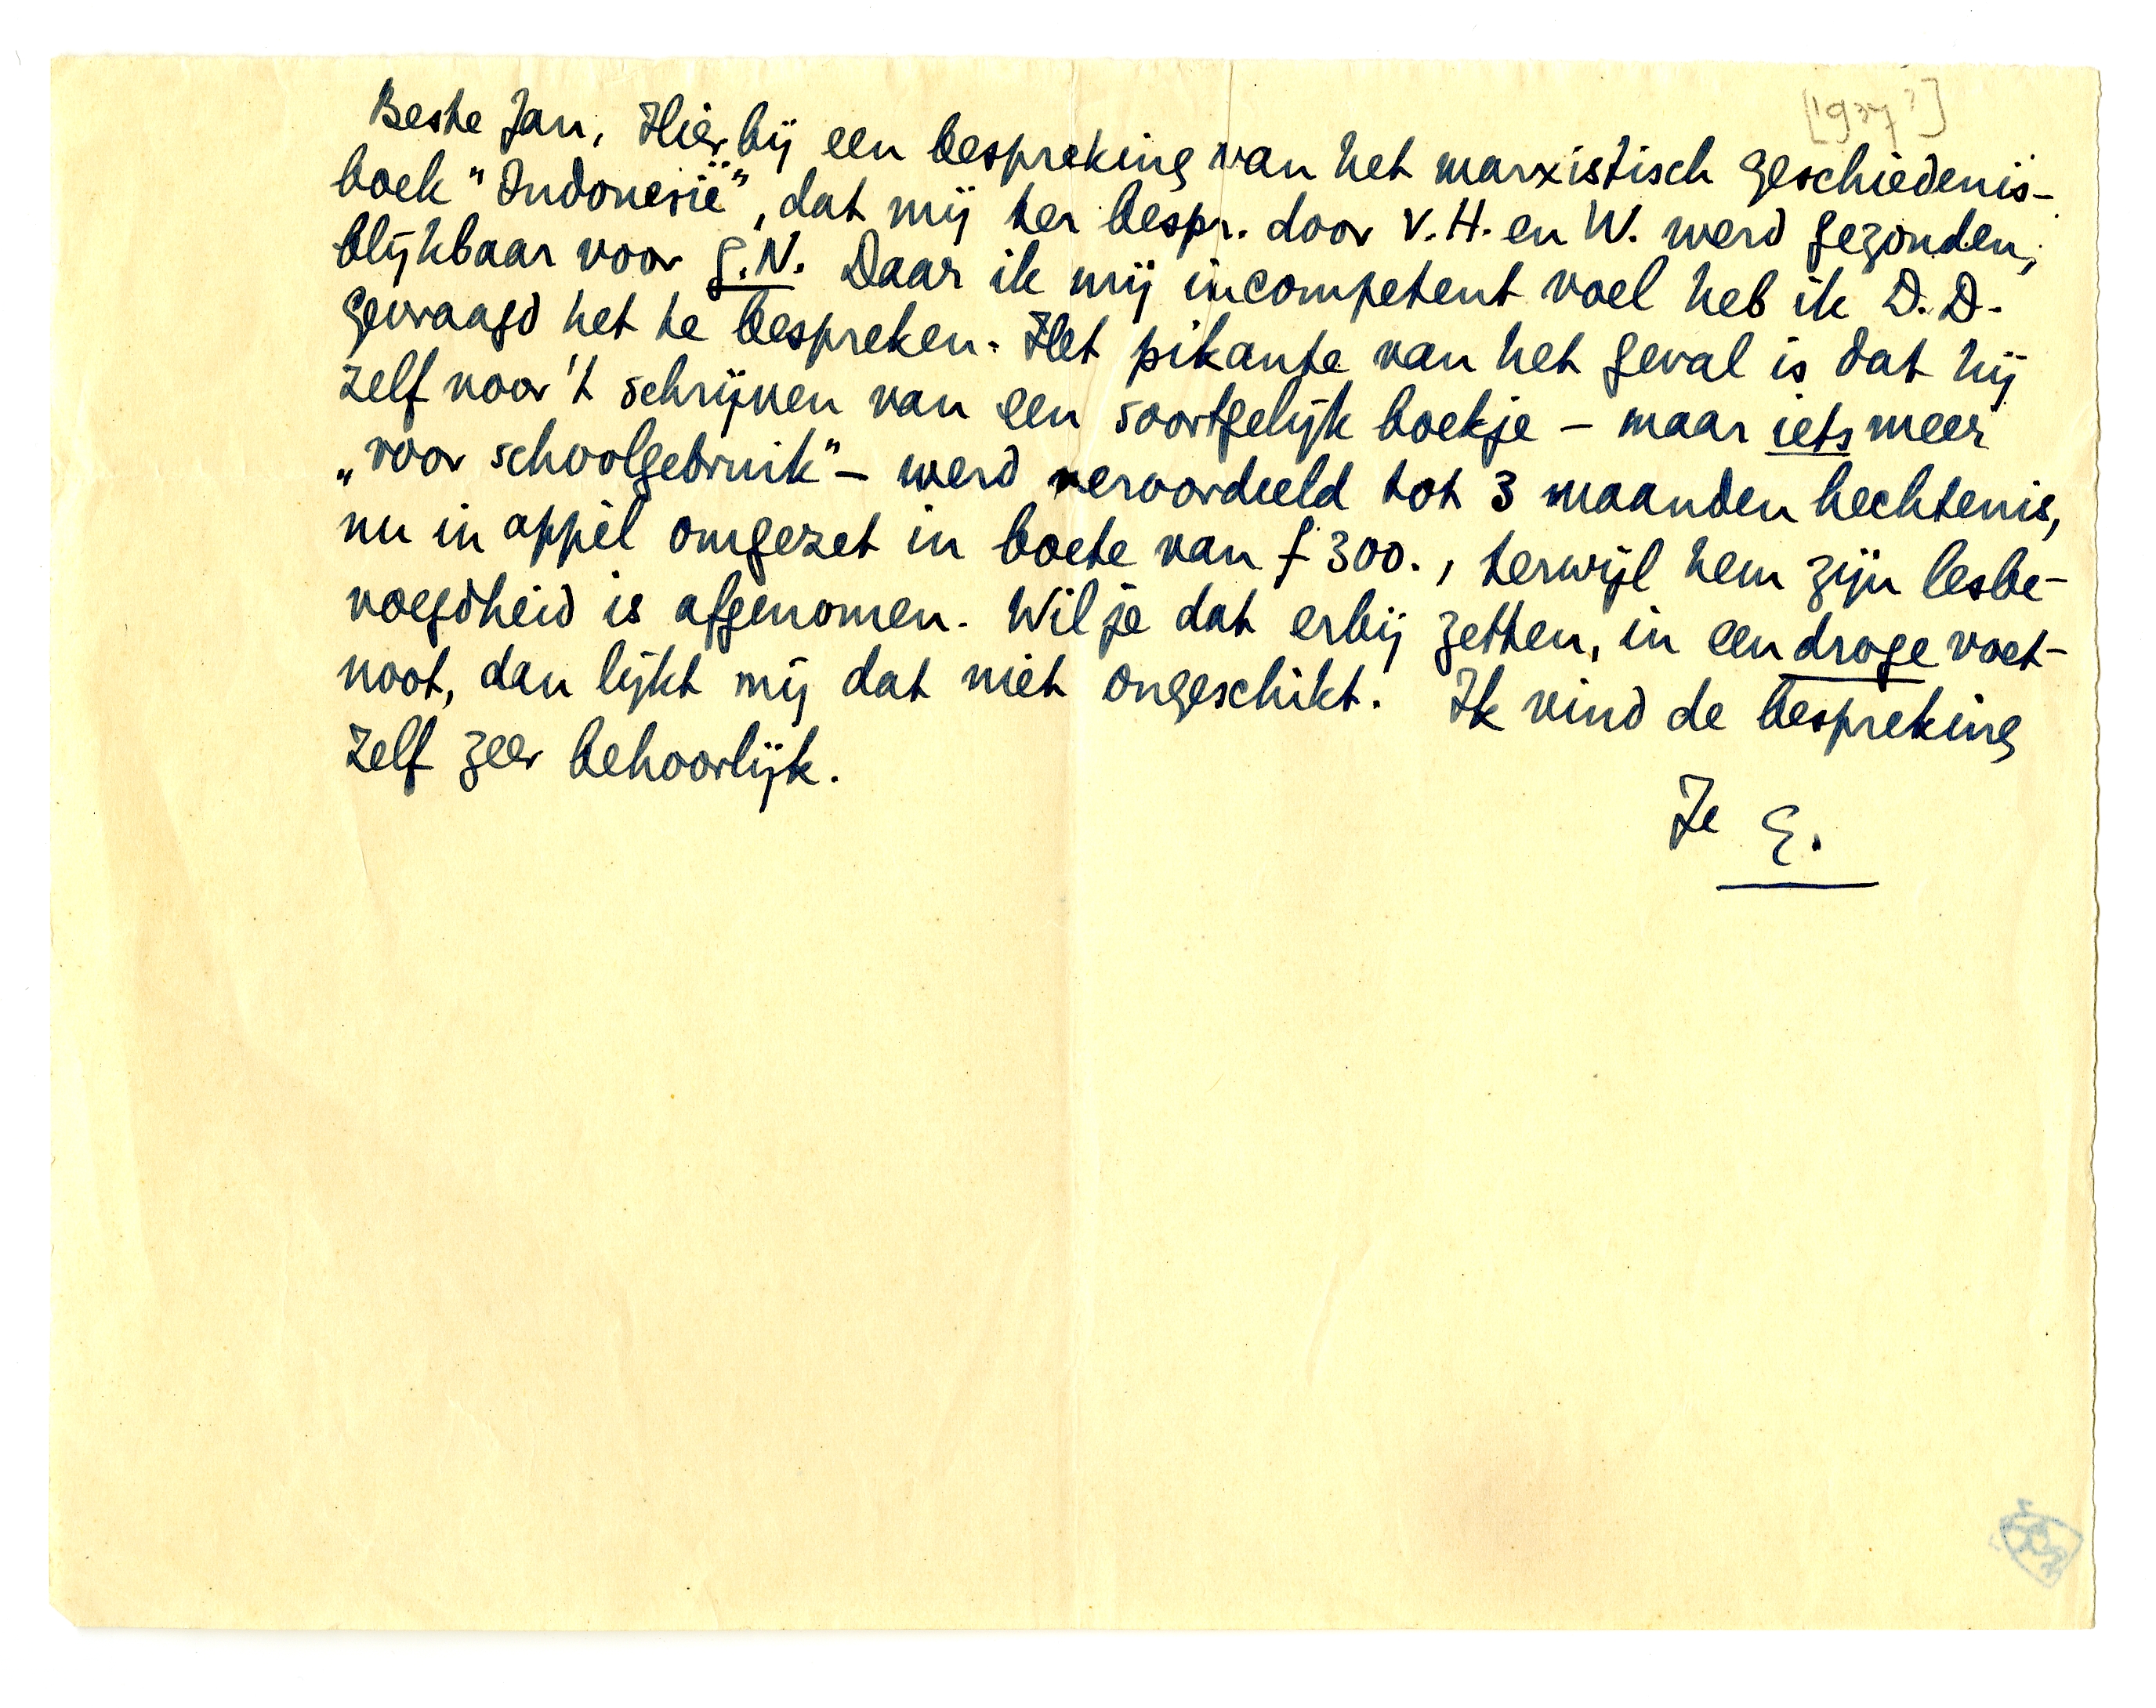 [1937?]
Beste Jan, Hierbij een bespreking van het marxistisch geschiedenis-
boek "Indonesië", dat mij ter bespr. door V.H. en W. werd gezonden,
blijkbaar voor G.N. Daar ik mij incompetent voel heb ik D.D.
gevraagd het te bespreken. Het pikante van het geval is dat hij
zelf voor 't schrijven van een soortgelijk boekje – maar iets meer
„voor schoolgebruik" – werd veroordeeld tot 3 maanden hechtenis,
nu in appèl omgezet in boete van f 300., terwijl hem zijn lesbe-
voegdheid is afgenomen. Wil je dat erbij zetten, in een droge voet-
noot, dan lijkt mij dat niet ongeschikt. Ik vind de bespreking
zelf zeer behoorlijk.
Je E.